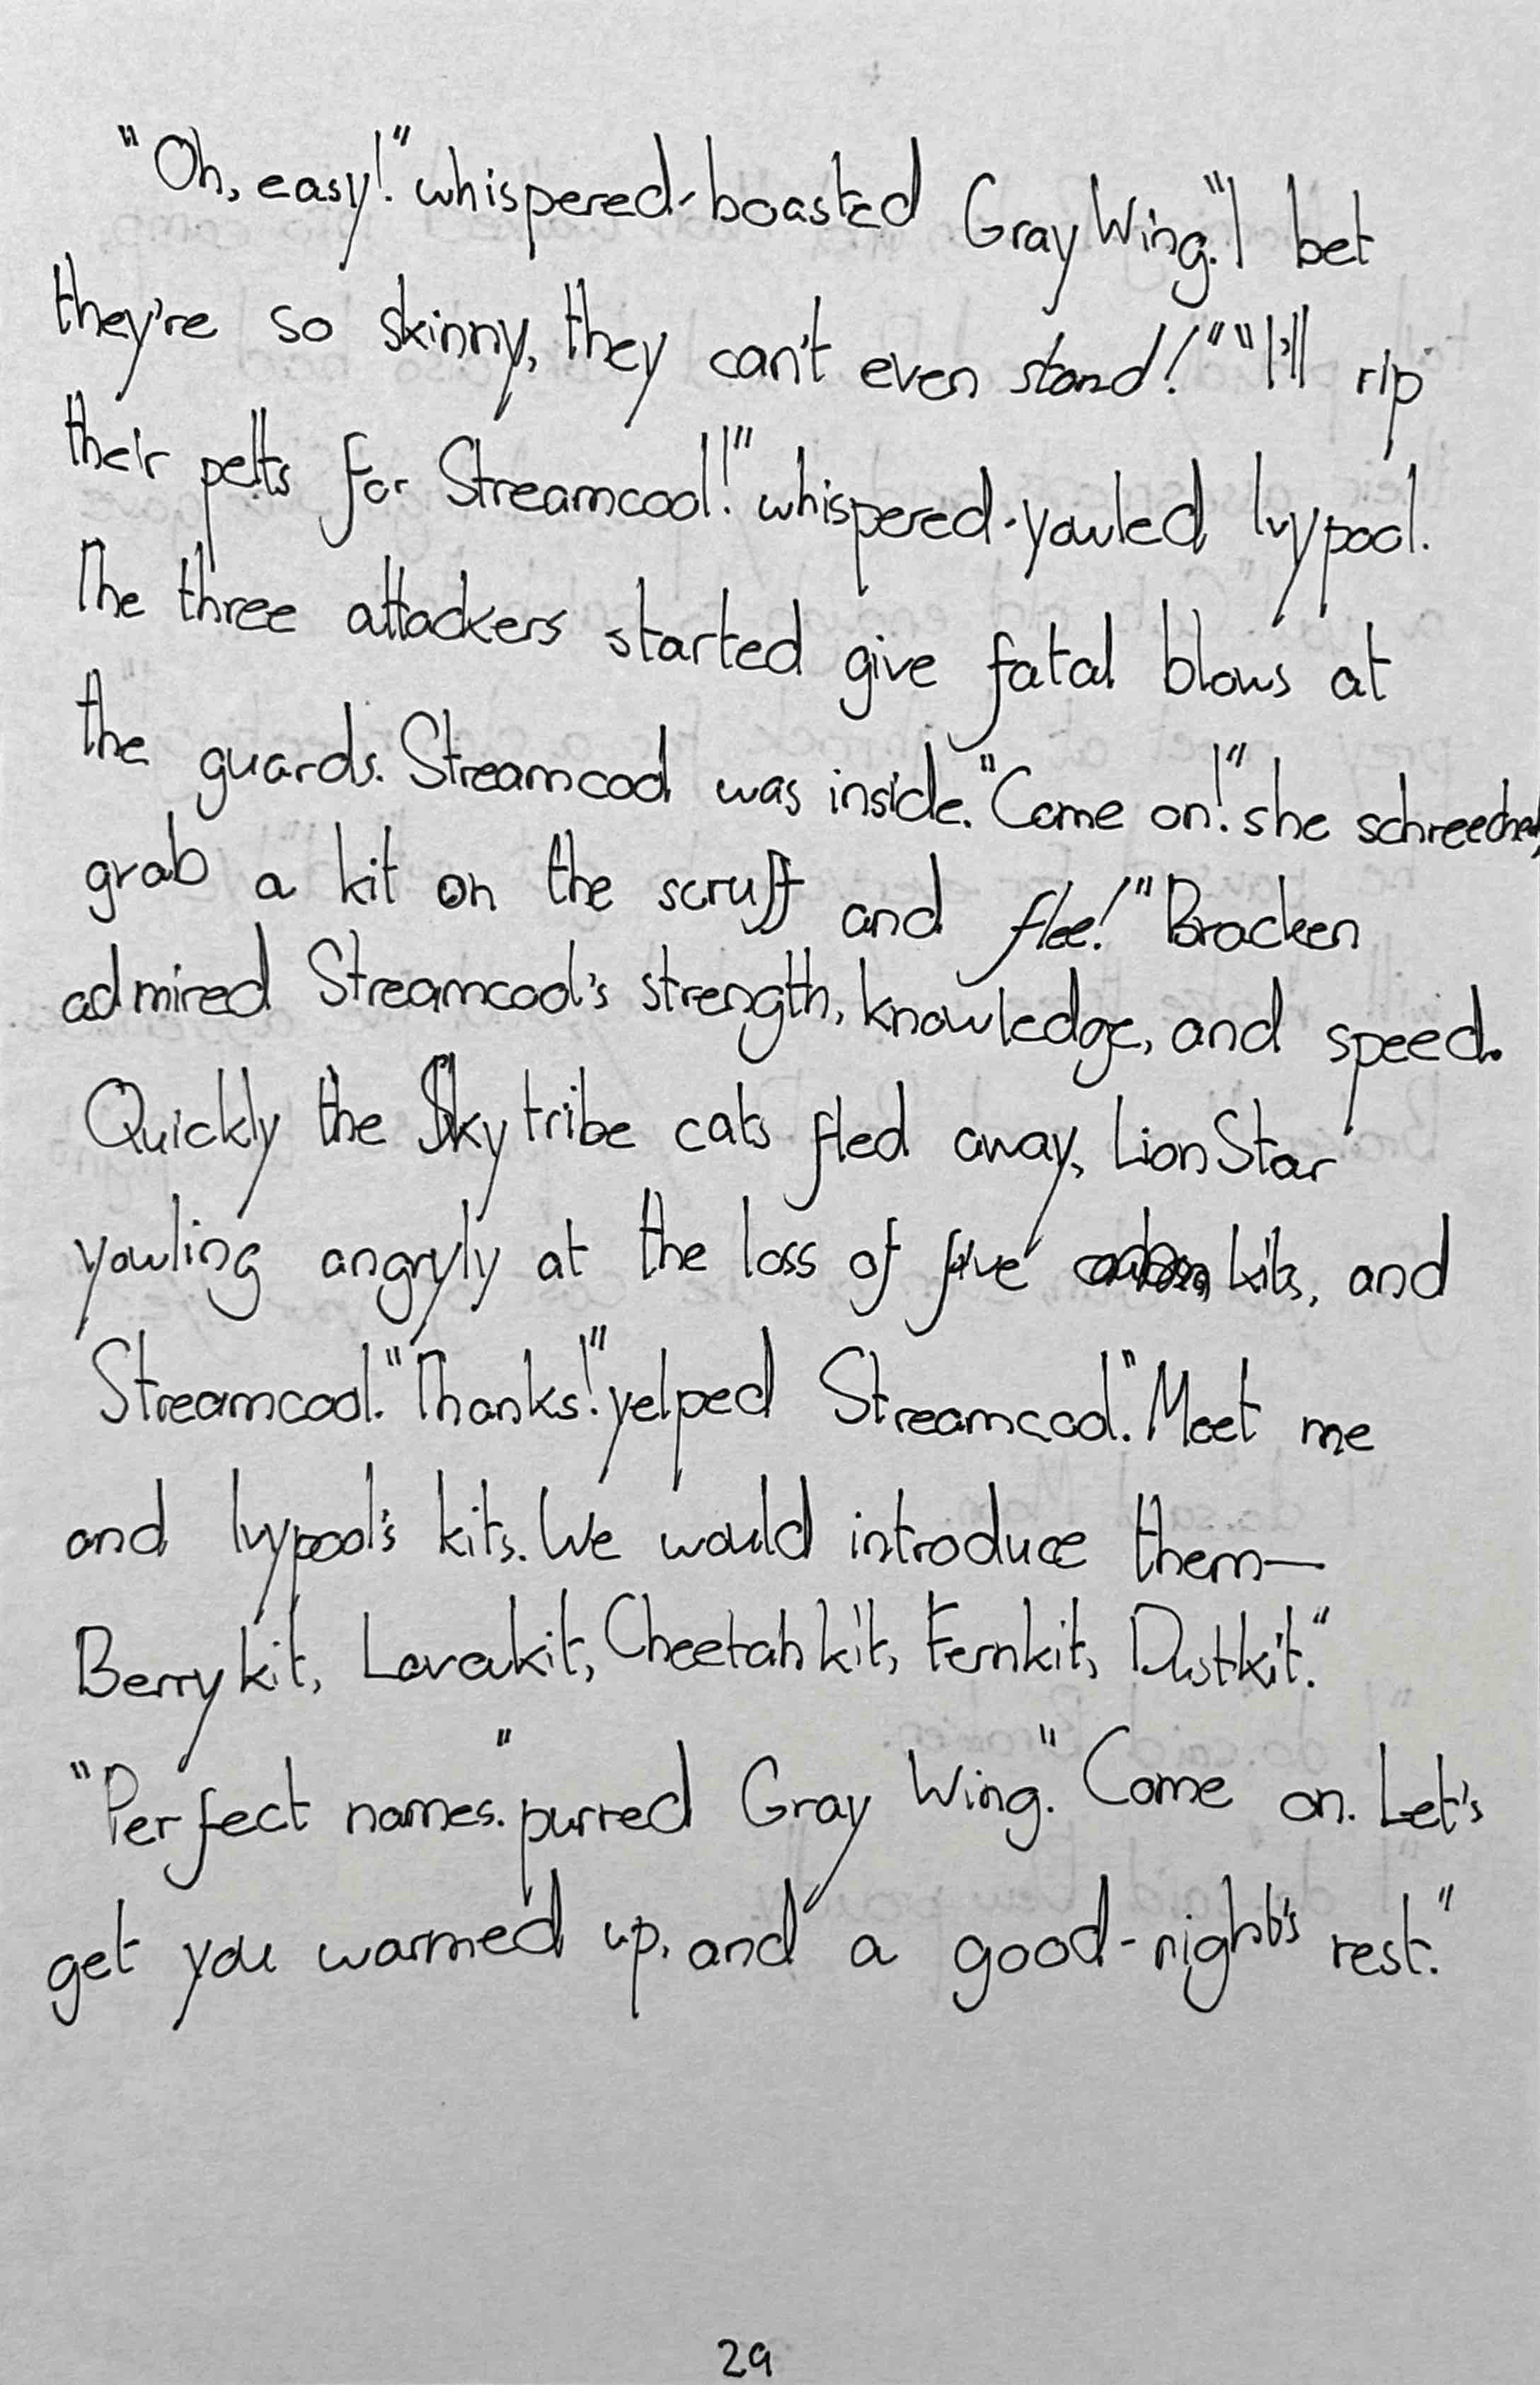 "Oh, easy!" whispered-boasted Gray Wing. "I bet
they're so skinny, they can't even stand!" "I'll rip
their pelts for Streamcool!" whispered-yowled Ivypool.
The three attackers started give fatal blows at
the guards. Streamcool was inside. "Come on!" she schreeched,
grab a kit on the scruff and flee!" Bracken
admired Streamcool's strength, knowledge, and speed.
Quickly the Sky tribe cats fled away, Lion Star
yowling angryly at the loss of five kits, and
Streamcool. "Thanks!" yelped Streamcool. "Meet me
and Ivypool's kits. We would introduce them—
Berrykit, Lavakit, Cheetahkit, Fernkit, Dustkit."
"Perfect names." purred Gray Wing. "Come on. Let's
get you warmed up, and a good-night's rest."
29